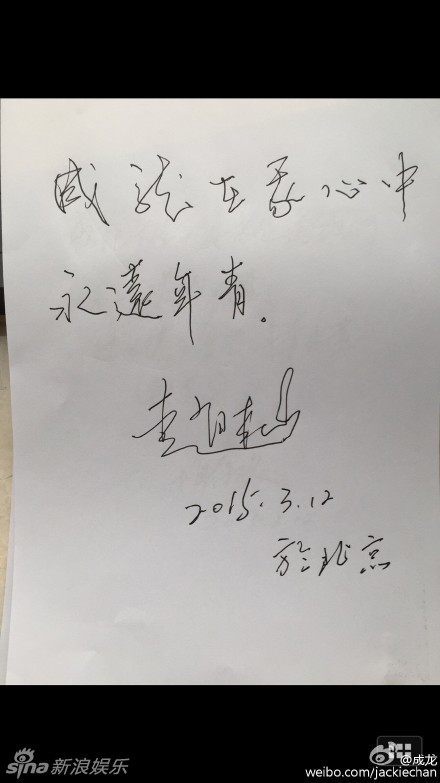 成龍在我心中
永遠年青。
趙本山
2015.3.12
於北京
sina新浪娱乐
@成龙
weibo.com/jackiechan